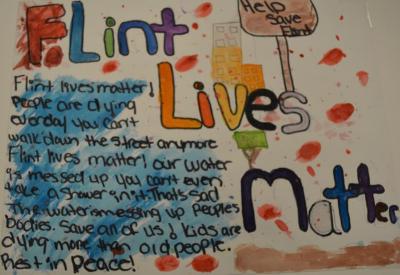 Flint
Help
Save
Flint
Lives
Matter
Flint lives matter!
People are dying
everyday you can't
walk down the street anymore
Flint lives matter! our water
is messed up you can't even
take a shower in it. That's sad
The water is messing up peoples
bodies. Save all of us! Kids are
dying more than old people.
Rest in Peace!